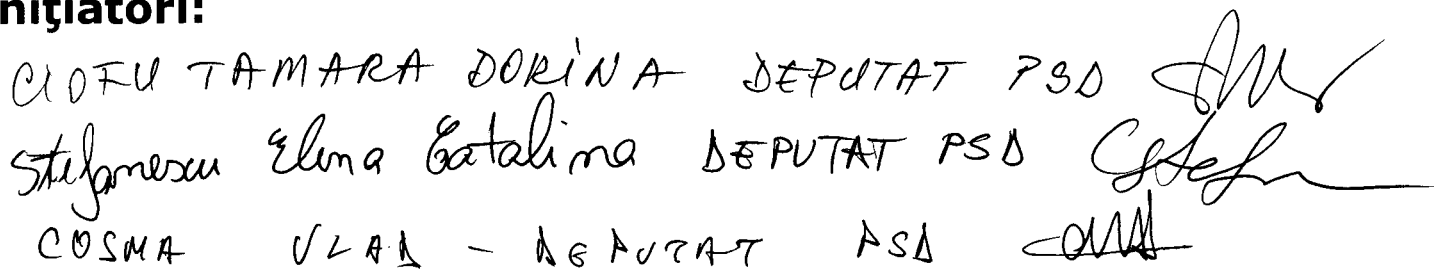 nițiatori:
CIOFU TAMARA DORINA DEPUTAT PSD
Stefanescu Elena Catalina DEPUTAT PSD
COSMA VLAD - DEPUTAT PSD